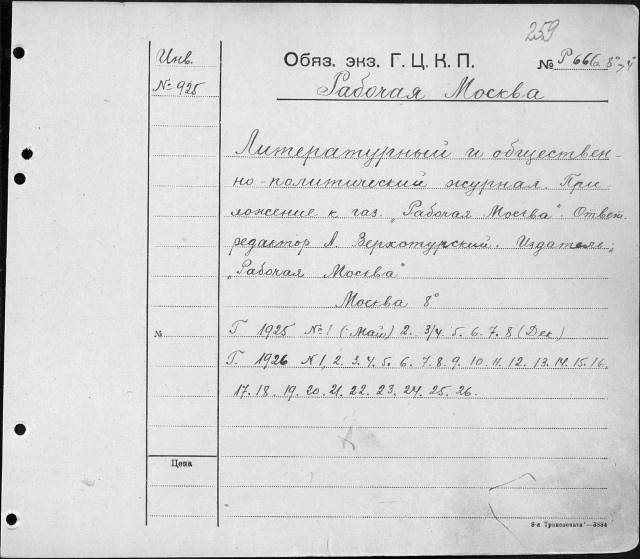 259
Инв. Обяз. экз. Г. Ц. К. П. № Р 666
№ 925 Рабочая Москва
Литературный и обществен-
но-политический журнал. При
ложение к газ. „Рабочая Москва“. Ответ.
редактор А. Верхотурский. Издатель:
„Рабочая Москва“
Москва 8°
№ Г 1925 № 1 (Май) 2. 3/4 5. 6. 7. 8 (Дек.)
Г. 1926 N 1, 2. 3. 4. 5. 6. 7. 8. 9. 10. 11. 12. 13. 14. 15. 16.
17. 18. 19. 20. 21. 22. 23. 24. 25. 26.
Цена
8-я Транспечати“—3884